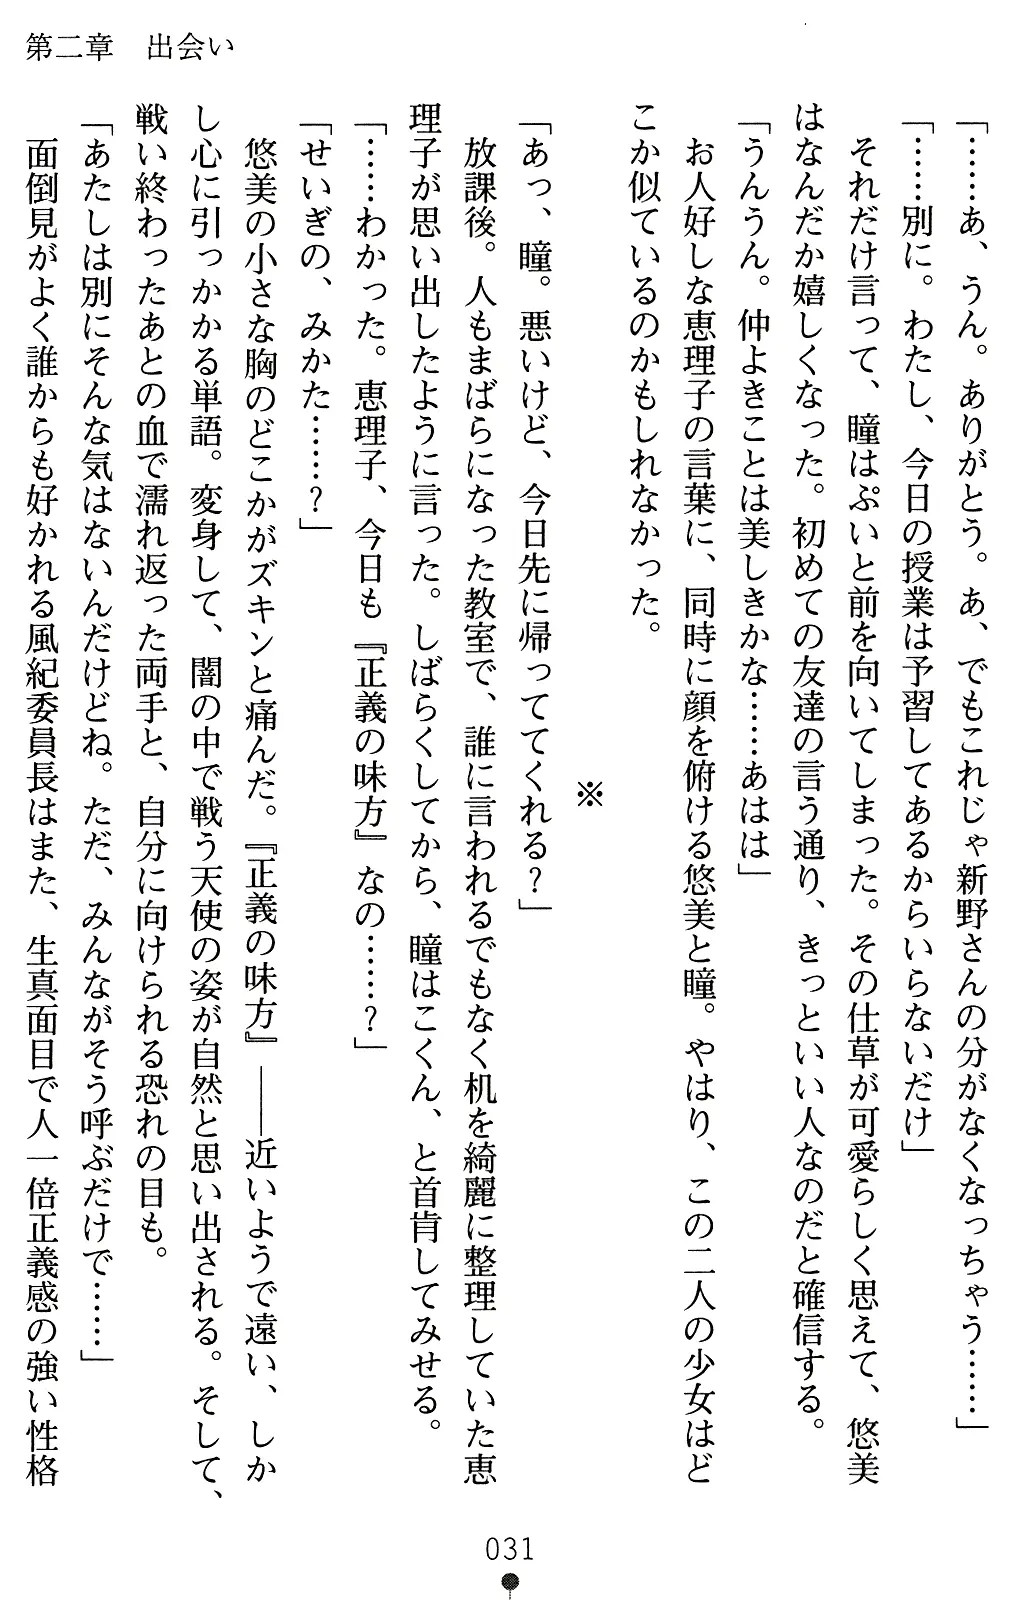 第二章　出会い
「……あ、うん。ありがとう。あ、でもこれじゃ新野さんの分がなくなっちゃう……」
「……別に。わたし、今日の授業は予習してあるからいらないだけ」
　それだけ言って、瞳はぷいと前を向いてしまった。その仕草が可愛らしく思えて、悠美
はなんだか嬉しくなった。初めての友達の言う通り、きっといい人なのだと確信する。
「うんうん。仲よきことは美しきかな……あはは」
　お人好しな恵理子の言葉に、同時に顔を俯ける悠美と瞳。やはり、この二人の少女はど
こか似ているのかもしれなかった。
※
「あっ、瞳。悪いけど、今日先に帰っててくれる？」
　放課後。人もまばらになった教室で、誰に言われるでもなく机を綺麗に整理していた恵
理子が思い出したように言った。しばらくしてから、瞳はこくん、と首肯してみせる。
「……わかった。恵理子、今日も『正義の味方』なの……？」
「せいぎの、みかた……？」
　悠美の小さな胸のどこかがズキンと痛んだ。『正義の味方』――近いようで遠い、しか
し心に引っかかる単語。変身して、闇の中で戦う天使の姿が自然と思い出される。そして、
戦い終わったあとの血で濡れ返った両手と、自分に向けられる恐れの目も。
「あたしは別にそんな気はないんだけどね。ただ、みんながそう呼ぶだけで……」
　面倒見がよく誰からも好かれる風紀委員長はまた、生真面目で人一倍正義感の強い性格
031